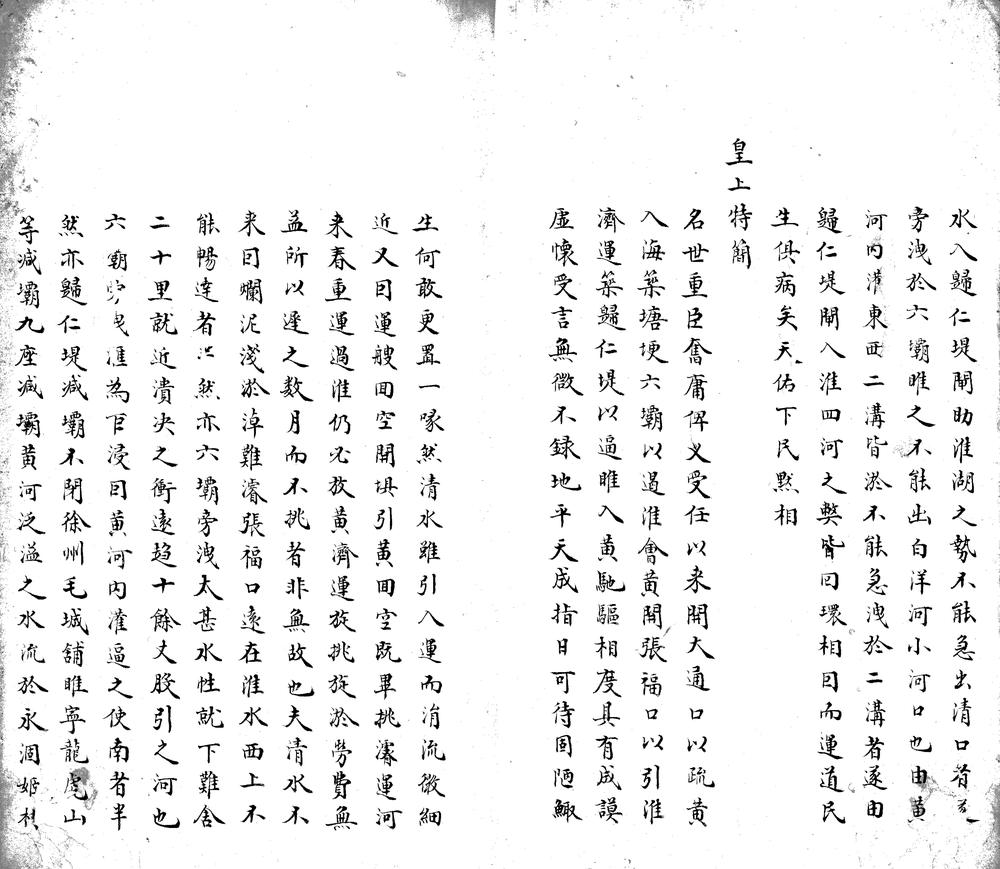 水入歸仁堤閘助淮湖之勢不能急出清口者
旁洩於六壩睢之不能出白洋河小河口也由黃
河內灌東西二溝皆淤不能急洩於二溝者遂由
歸仁堤閘入淮四河之弊皆囘環相因而運道民
生俱病矣天佑下民默相
皇上特簡
名世重臣奮庸俾乂受任以来開大通口以疏黃
入海築塘埂六壩以遏淮會黃開張福口以引淮
濟運築歸仁堤以逼睢入黃馳驅相度具有成謨
虛懷受言無微不録地平天成指日可待固陋鯫
生何敢更置一喙然清水雖引入運而涓流微細
近又因運艘囬空開垻引黃囬空既畢挑濬運河
来春重運過淮仍必放黃濟運旋挑旋淤勞費無
益所以遲之数月而不挑者非無故也夫清水不
来曰爛泥淺淤淖難濬張福口遠在淮水西上不
能暢達者然亦六壩旁洩太甚水性就下難舍
二十里就近潰决之衝遠趋十餘丈股引之河也
六壩旁洩淮為巨浸因黃河內灌逼之使南者半
然亦歸仁堤減壩不閉徐州毛城舖睢寧龍虎山
等減壩九座減壩黃河泛溢之水流於永涸姬村